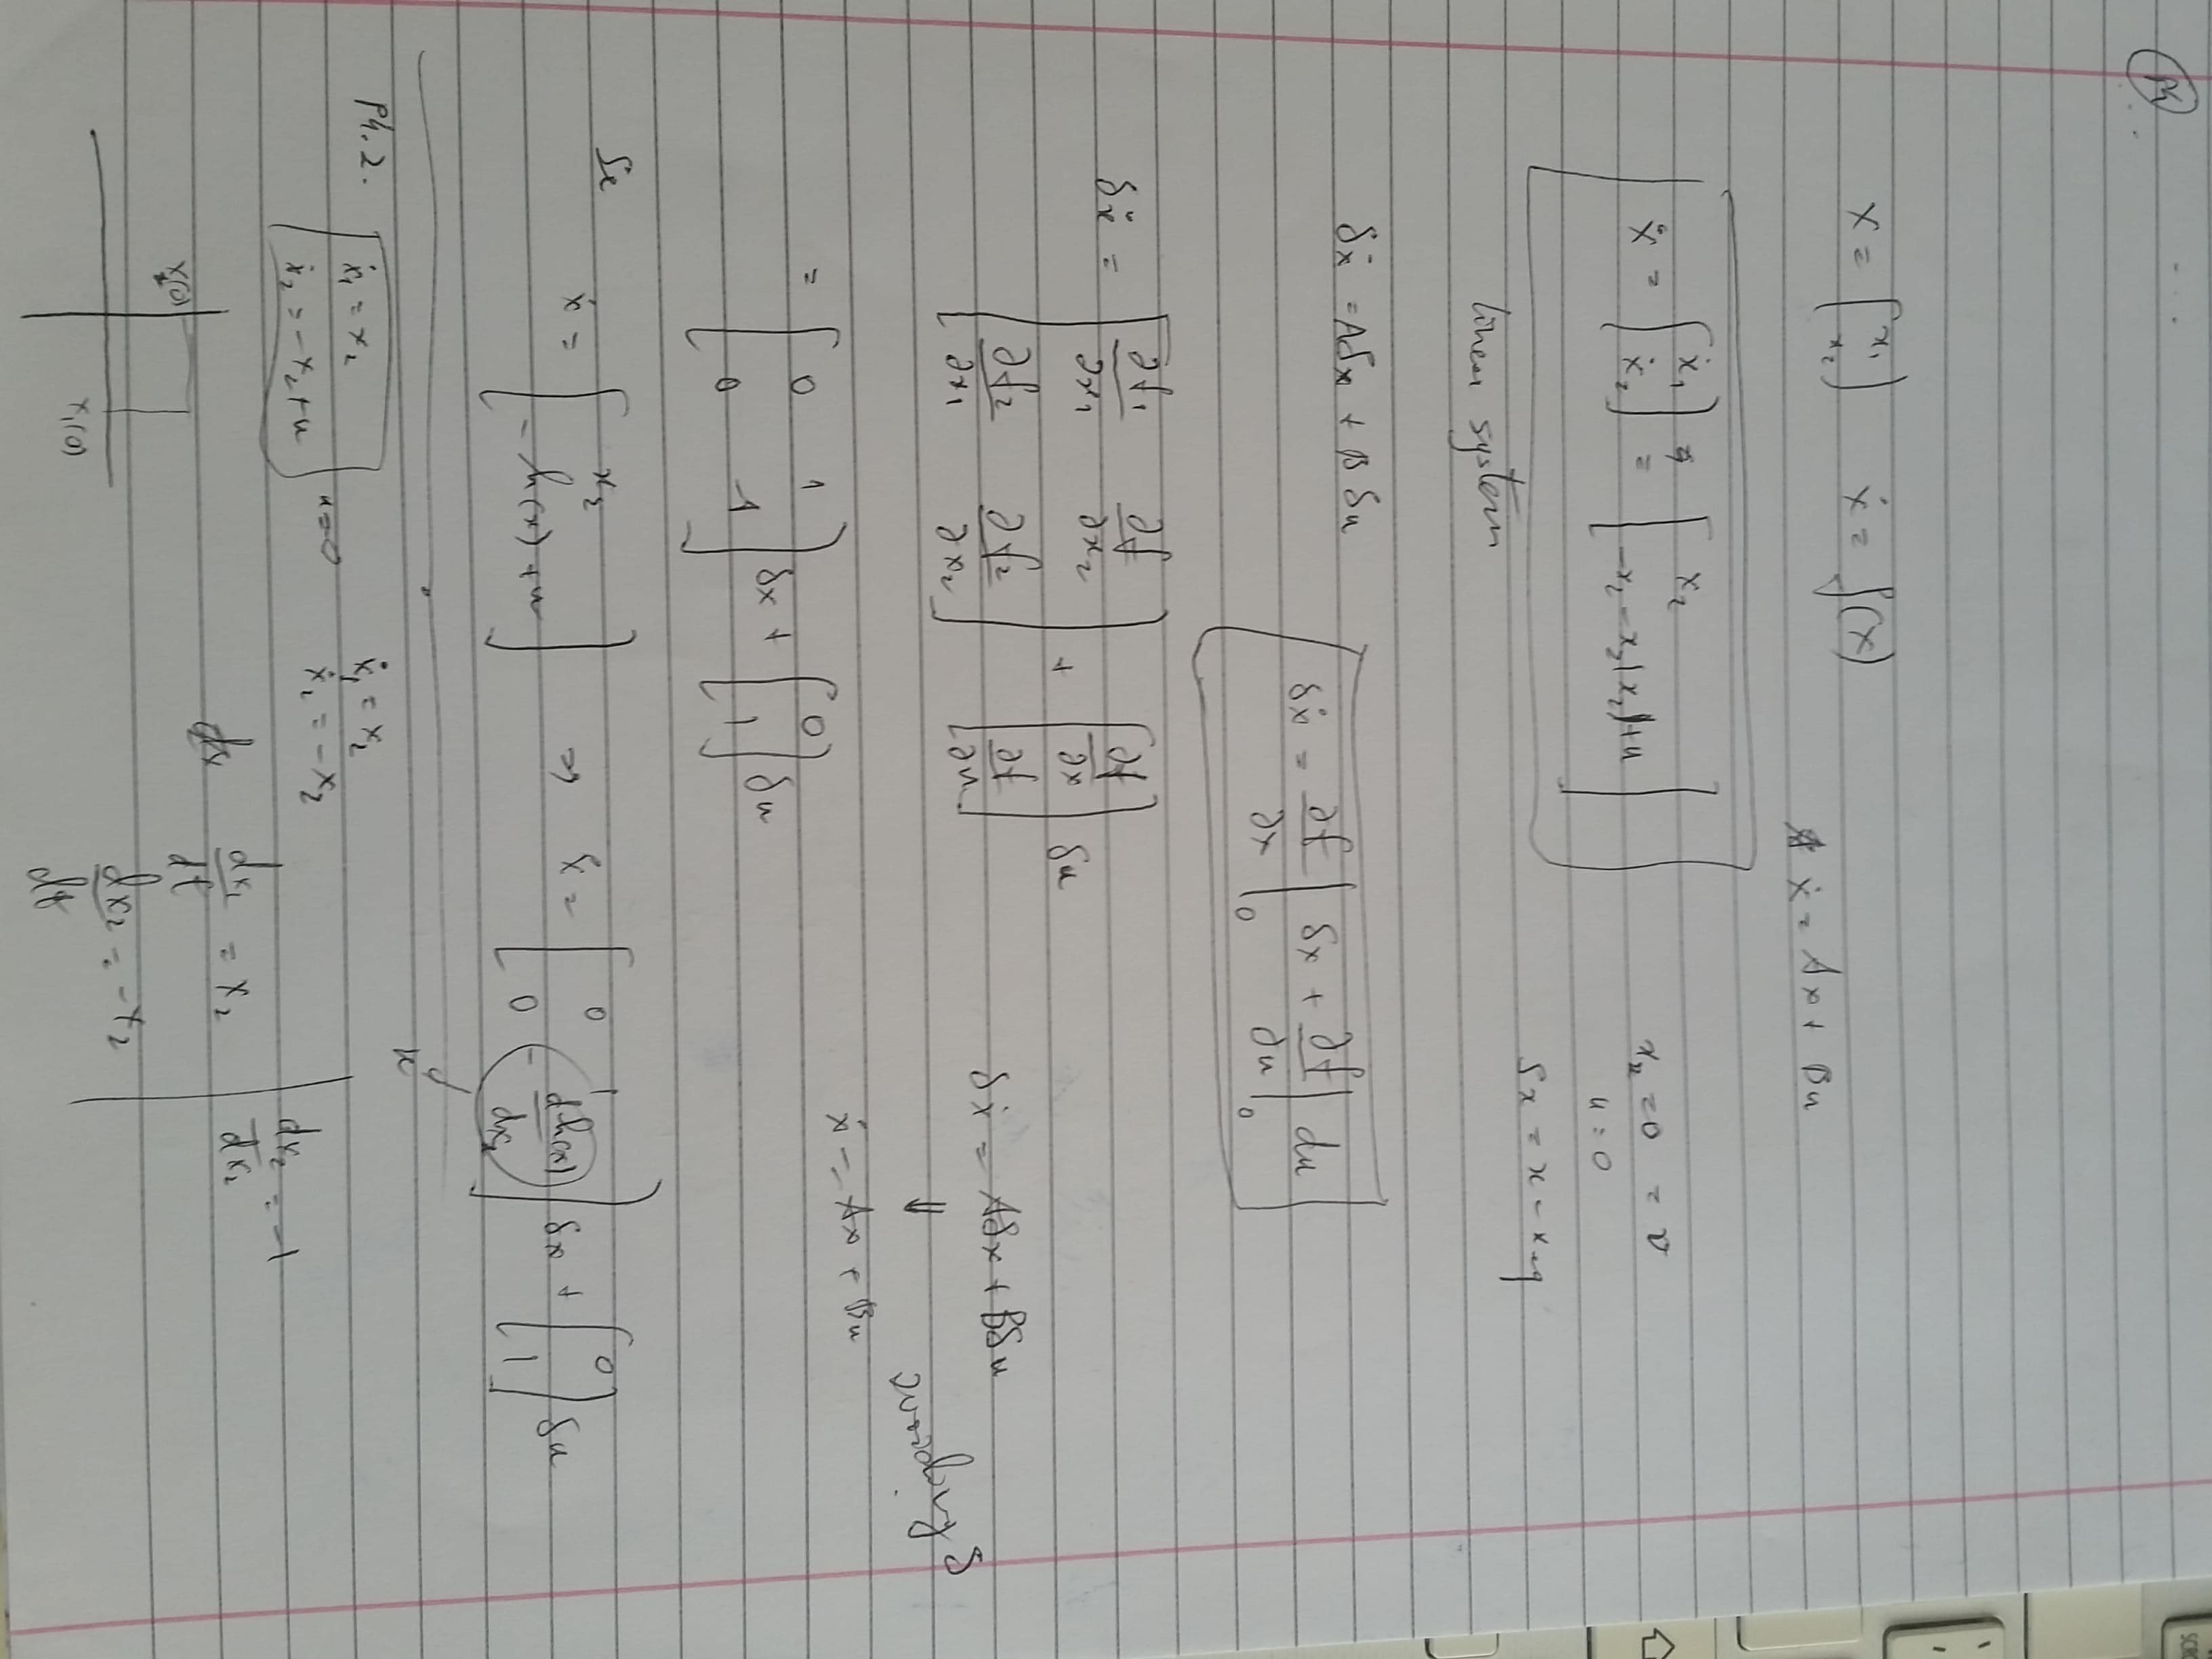 P4
X = [x₁ x₂] ẋ = f(x)
ẋ = Ax + Bu
ẋ = [ẋ₁ ẋ₂] = [x₂ -x₂ - x₂|x₂| + u]
= 0 = v
u = 0
δx = x - xeq
linear system
δẋ = Aδx + B δu
δẋ = ∂f/∂x |₀ δx + ∂f/∂u |₀ du
δẋ = [∂f₁/∂x₁ ∂f/∂x₂ ∂f₂/∂x₁ ∂f₂/∂x₂] + [∂f/∂x ∂f/∂u] δu
δẋ = Aδx + Bδu
⇓ avoiding δ
ẋ = Ax + Bu
= [0 1 0 -1] δx + [0 1] δu
ẋ = [x₂ -h(x) + u] ⇒ ẋ = [0 1 0 -dh(x)/dx₂] δx + [0 1] δu
P4.2. ẋ₁ = x₂ ẋ₂ = -x₂ + u u=0 ẋ₁ = x₂ ẋ₂ = -x₂
dx₁/dt = x₂
dx₂/dt = -x₂
dx₂/dx₂ = -1
x₂(0)
x₁(0)